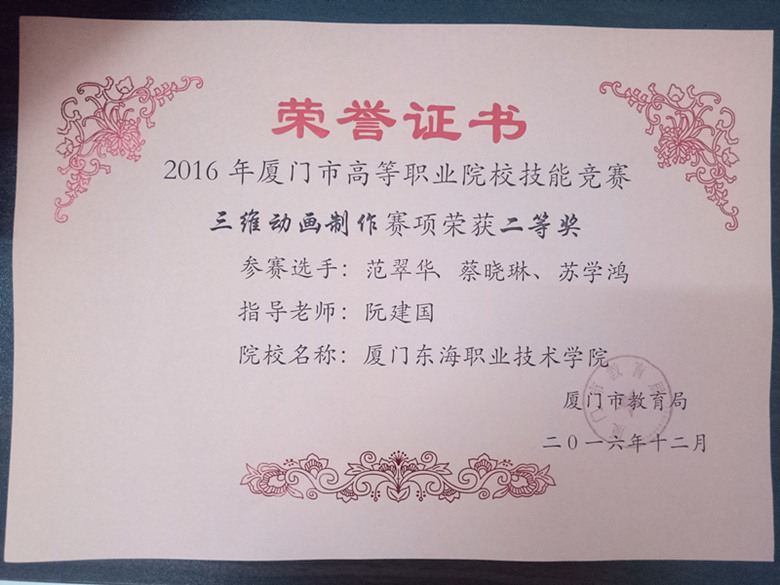 荣誉证书
2016年厦门市高等职业院校技能竞赛
三维动画制作赛项荣获二等奖
参赛选手：范翠华、蔡晓琳、苏学鸿
指导老师：阮建国
院校名称：厦门东海职业技术学院
厦门市教育局
二〇一六年十二月
厦门市教育局